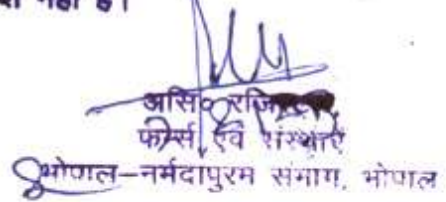 नहीं है।
असि० रजि
फर्म्स एवं संस्थाएं
भोपाल–नर्मदापुरम संभाग, भोपाल